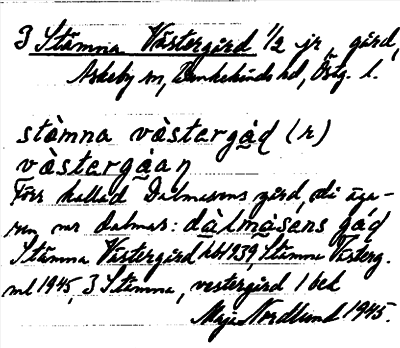 3 Stämna Västergård 1/2 jr, gård,
Askeby sn, Bankekinds hd, Östg. l.
stàmna vàstergạd (r)
vàstergạaŋ
Förr kallad Dalmasens gård, då äga-
ren var dalmas: dàlmàsens gạd
Stämna Västergård hbl 1939, Stämna Västerg.
ml 1945, 3 Stämna, vestergård 1 bed
Maja Nordlund 1945.